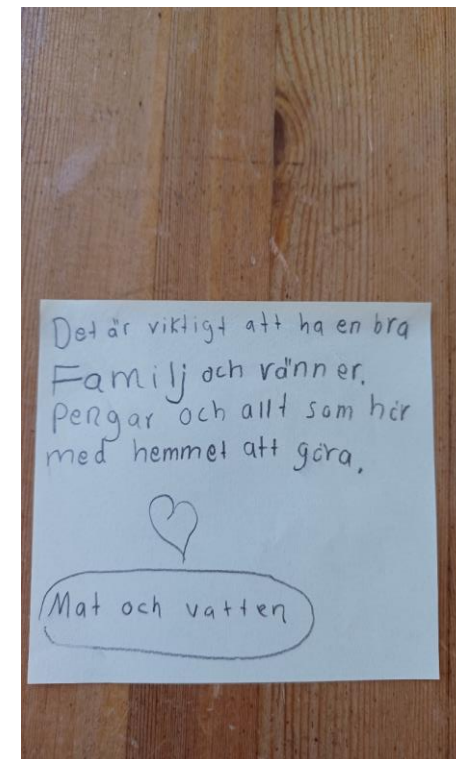 Det är viktigt att ha en bra
Familj och vänner.
Pengar och allt som hör
med hemmet att göra.
Mat och vatten